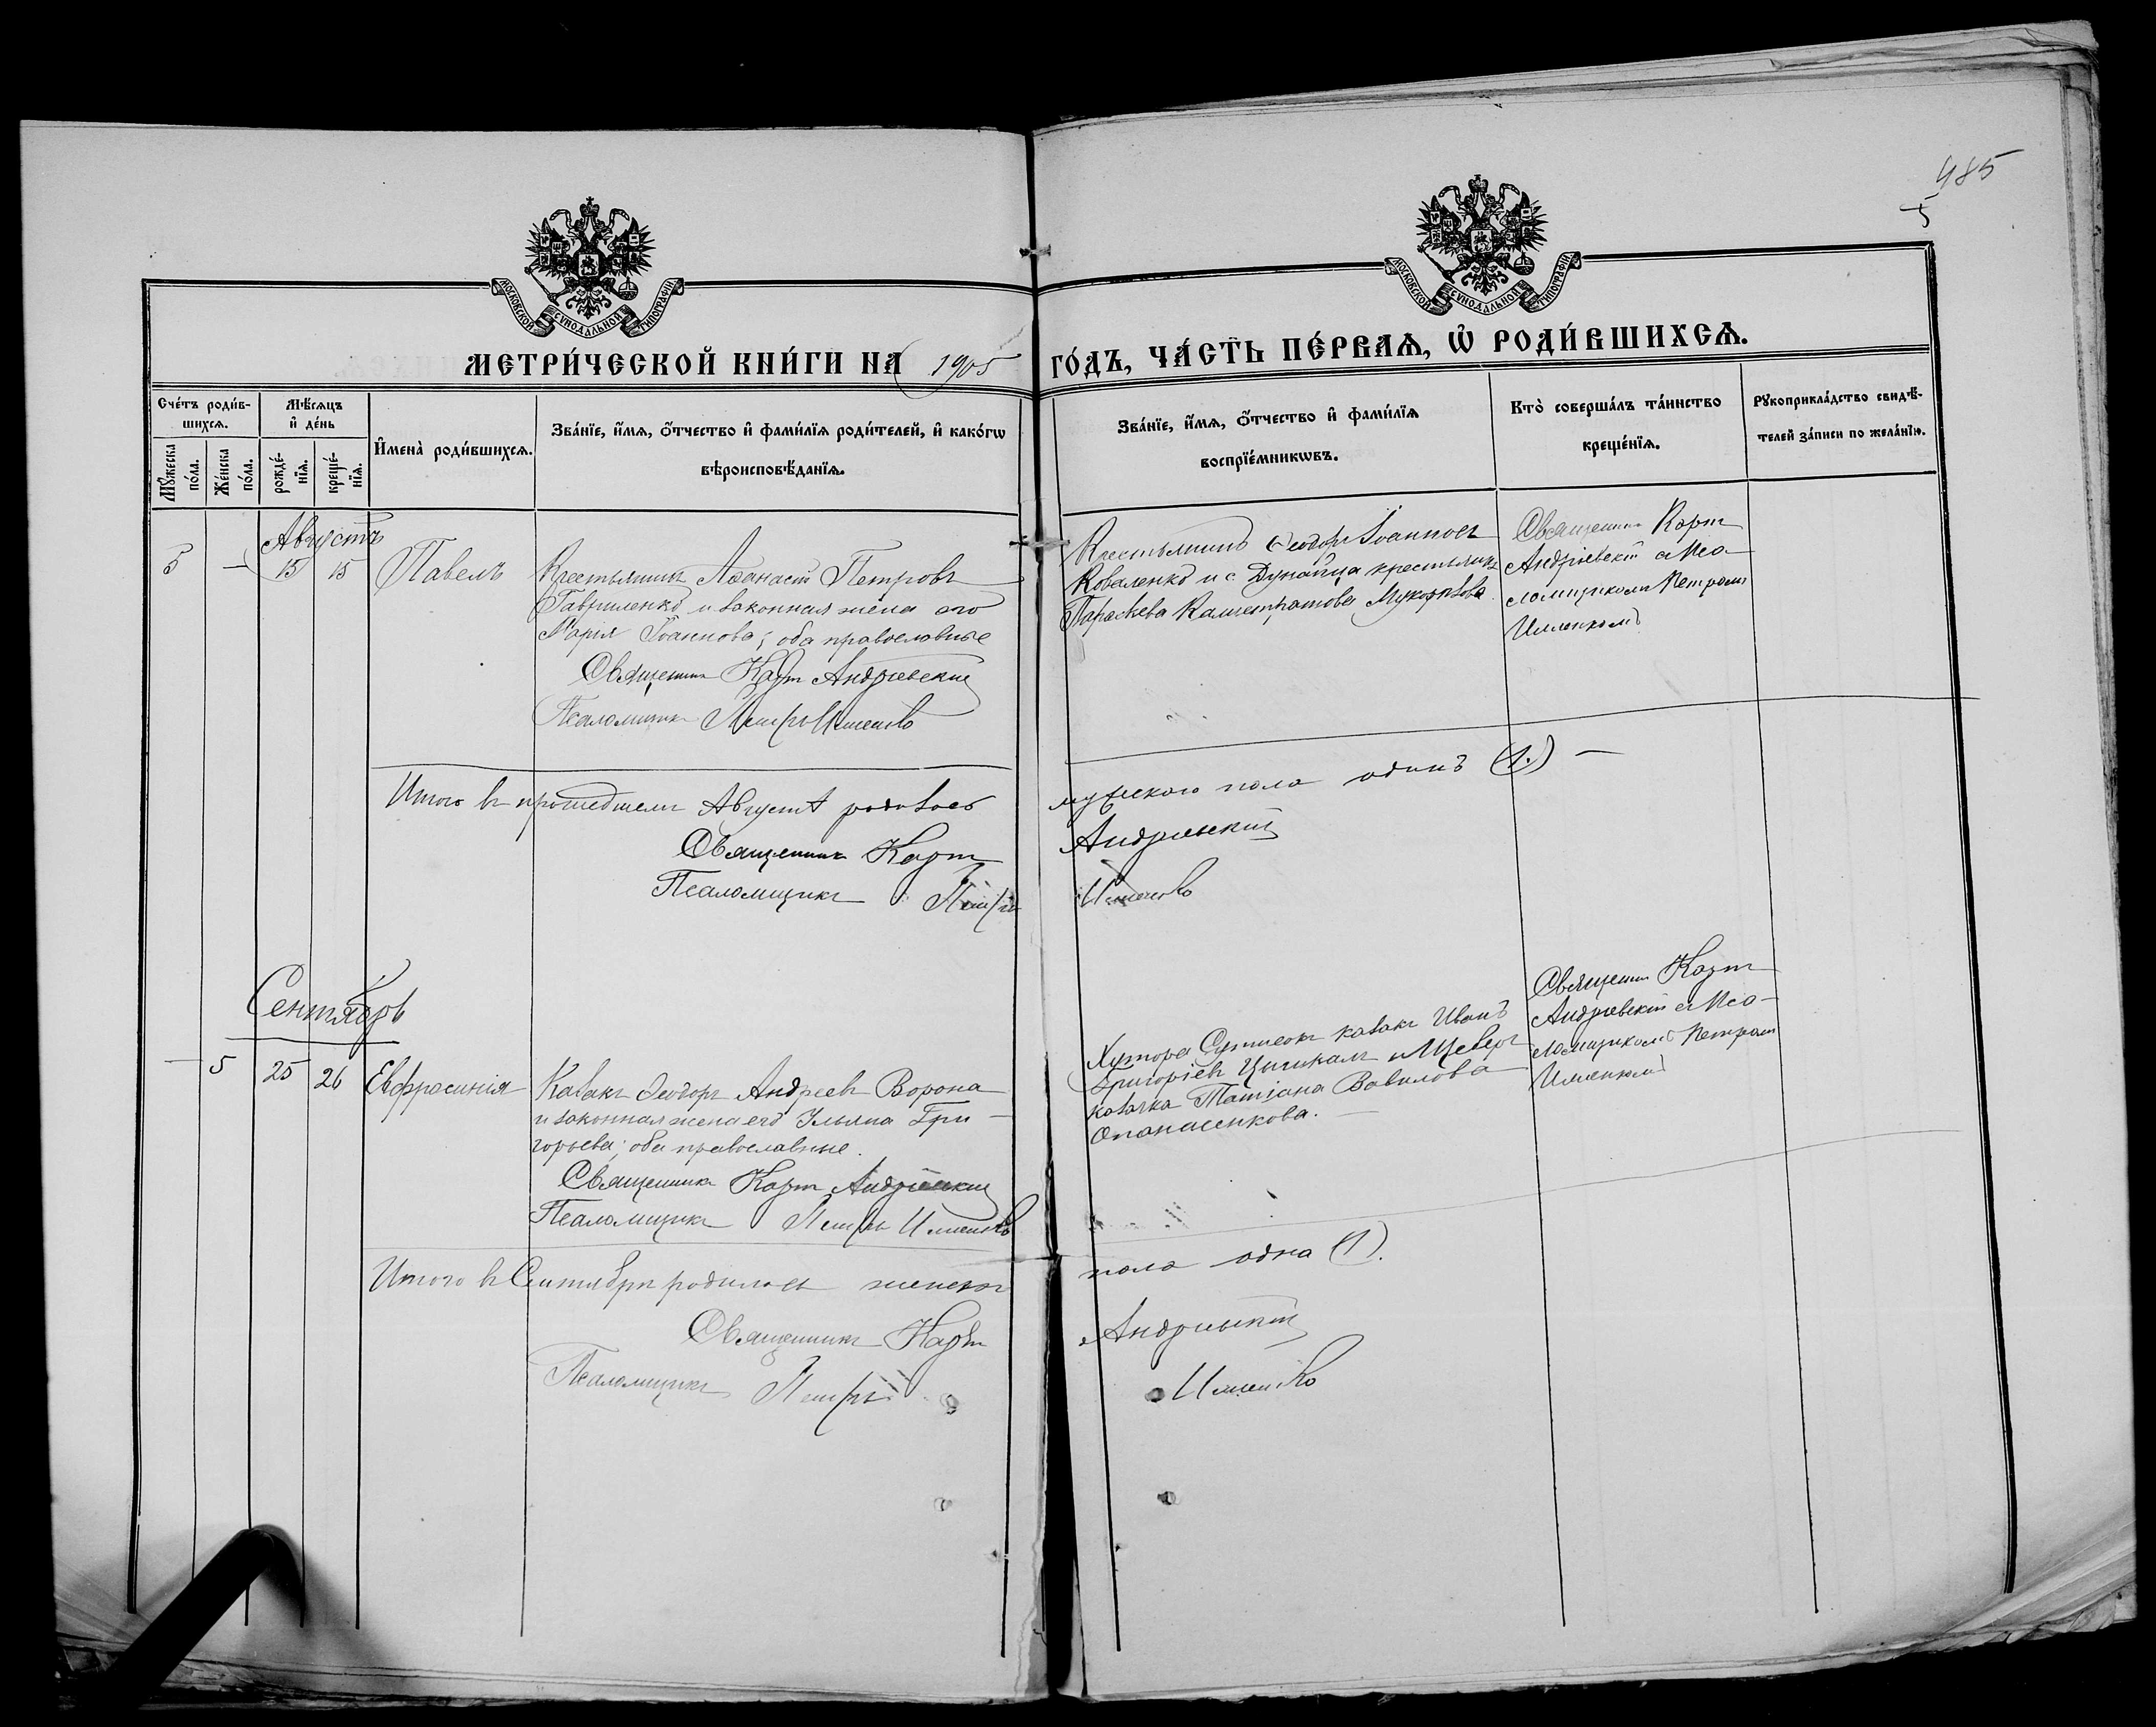 485
5
МОСКОВСКОЙ СѴНОДАЛЬНОЙ ТИПОГРАФІИ
МОСКОВСКОЙ СѴНОДАЛЬНОЙ ТИПОГРАФІИ
МЕТРИ́ЧЕСКОЙ КНИ́ГИ НА 1905 ГО́ДЪ, ЧА́СТЬ ПЕ́РВАѦ, Ѿ РОДИ́ВШИХСѦ.
Сче́тъ роди́в-
шихсѧ.
Мꙋ́жеска по́ла.
Же́нска по́ла.
Мѣ́сѧцъ и҆ де́нь
рожде́-
нїѧ.
креще́-
нїѧ.
И҆мена̀ роди́вшихсѧ.
Зва́нїе, и҆́мѧ, ѻ҆́тчество и҆ фами́лїѧ роди́телей, и҆ како́гѡ
вѣроисповѣ́данїѧ.
Зва́нїе, и҆́мѧ, ѻ҆́тчество и҆ фами́лїѧ
воспрїе́мникѡвъ.
Кто̀ соверша́лъ та́инство
креще́нїѧ.
Рꙋкоприкла́дство свидѣ́-
телей за́писи по жела́нїю.
Августъ
5 — 15 15 Павелъ
Крестьянинъ Аѳанасій Петровъ
Гавриленко и законная жена его
Марія Іоаннова; оба православные
Священникъ Андріевскій
Псаломщикъ Петръ
Крестьянинъ Ѳеодоръ Іоанновъ
Коваленко и с. Дунайца крестьянка
Параскева
Священникъ
Андріевскій съ Пса-
ломщикомъ Петромъ
Итого въ прошедшемъ Августѣ родилось мужеского пола одинъ (1.) —
Священникъ Андріевскій
Псаломщикъ Петръ
Сентябрь
— 5 25 26 Евфросинія
Казакъ Ѳеодоръ Андреевъ Ворона
и законная жена его Ульяна Гри-
горьева; оба православные.
Священникъ Андріевскій
Псаломщикъ Петръ
Хутора казакъ Иванъ
Григоріевъ
казачка Татіана Вавилова
Опанасенкова. —
Священникъ
Андріевскій съ Пса-
ломщикомъ Петромъ
Итого въ Сентябрѣ родилось женскаго пола одна (1).
Священникъ Андріевскій
Псаломщикъ Петръ